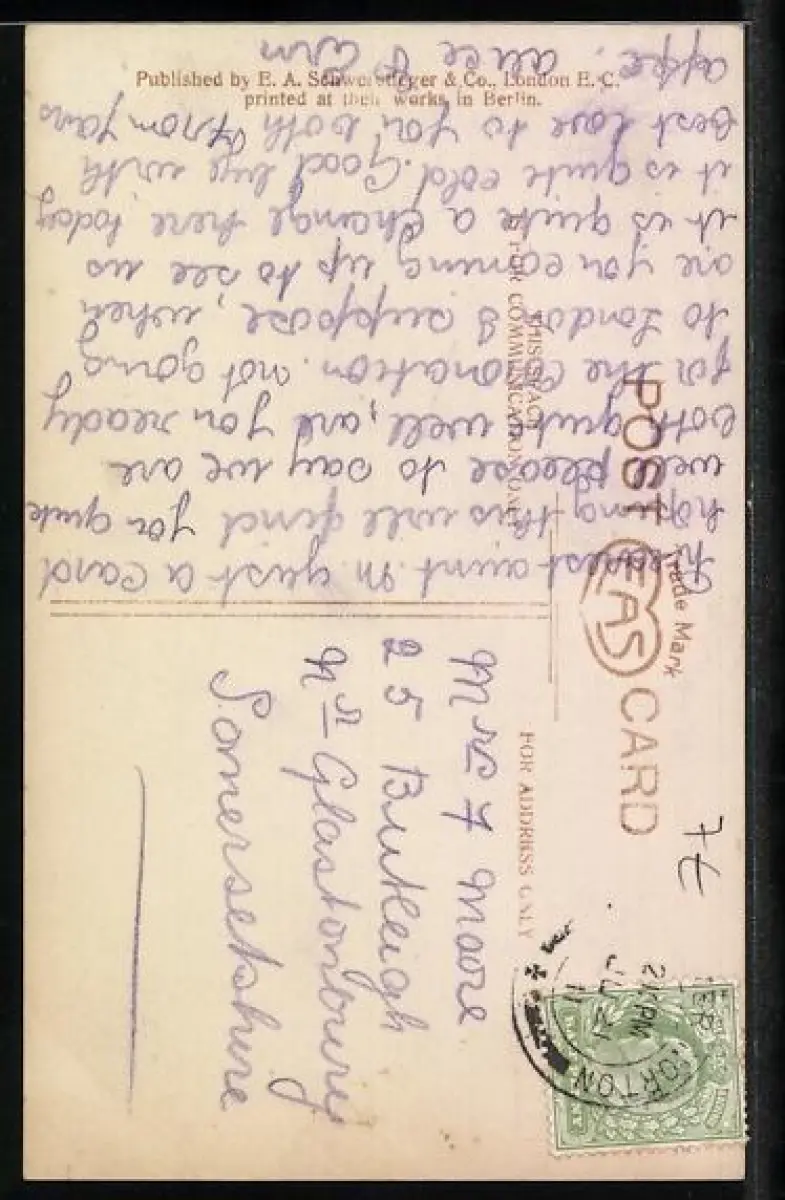 Published by E. A. Schwerdtfeger & Co., London E. C.
printed at their works in Berlin.
POST CARD
Trade Mark
EAS
THIS SPACE
IS FOR COMMUNICATION ONLY
FOR ADDRESS ONLY
Dearest aunt. M just a Card
hoping this will find you quite
well please to say we are
both quite well, are you ready
for the Coronation. not going
to London I suppose, when
are you coming up to see us
it is quite a change here today
it is quite cold. Good bye with
Best love to you both From yours
affec. alice &
Mrs F Moore
25 Butleigh
Nr Glastonbury
Somersetshire
7t
ORTON
2 PM
11